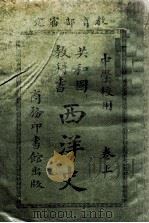 教育部審定
中學校用
共和國
教科書
西洋史
卷上
商務印書館出版